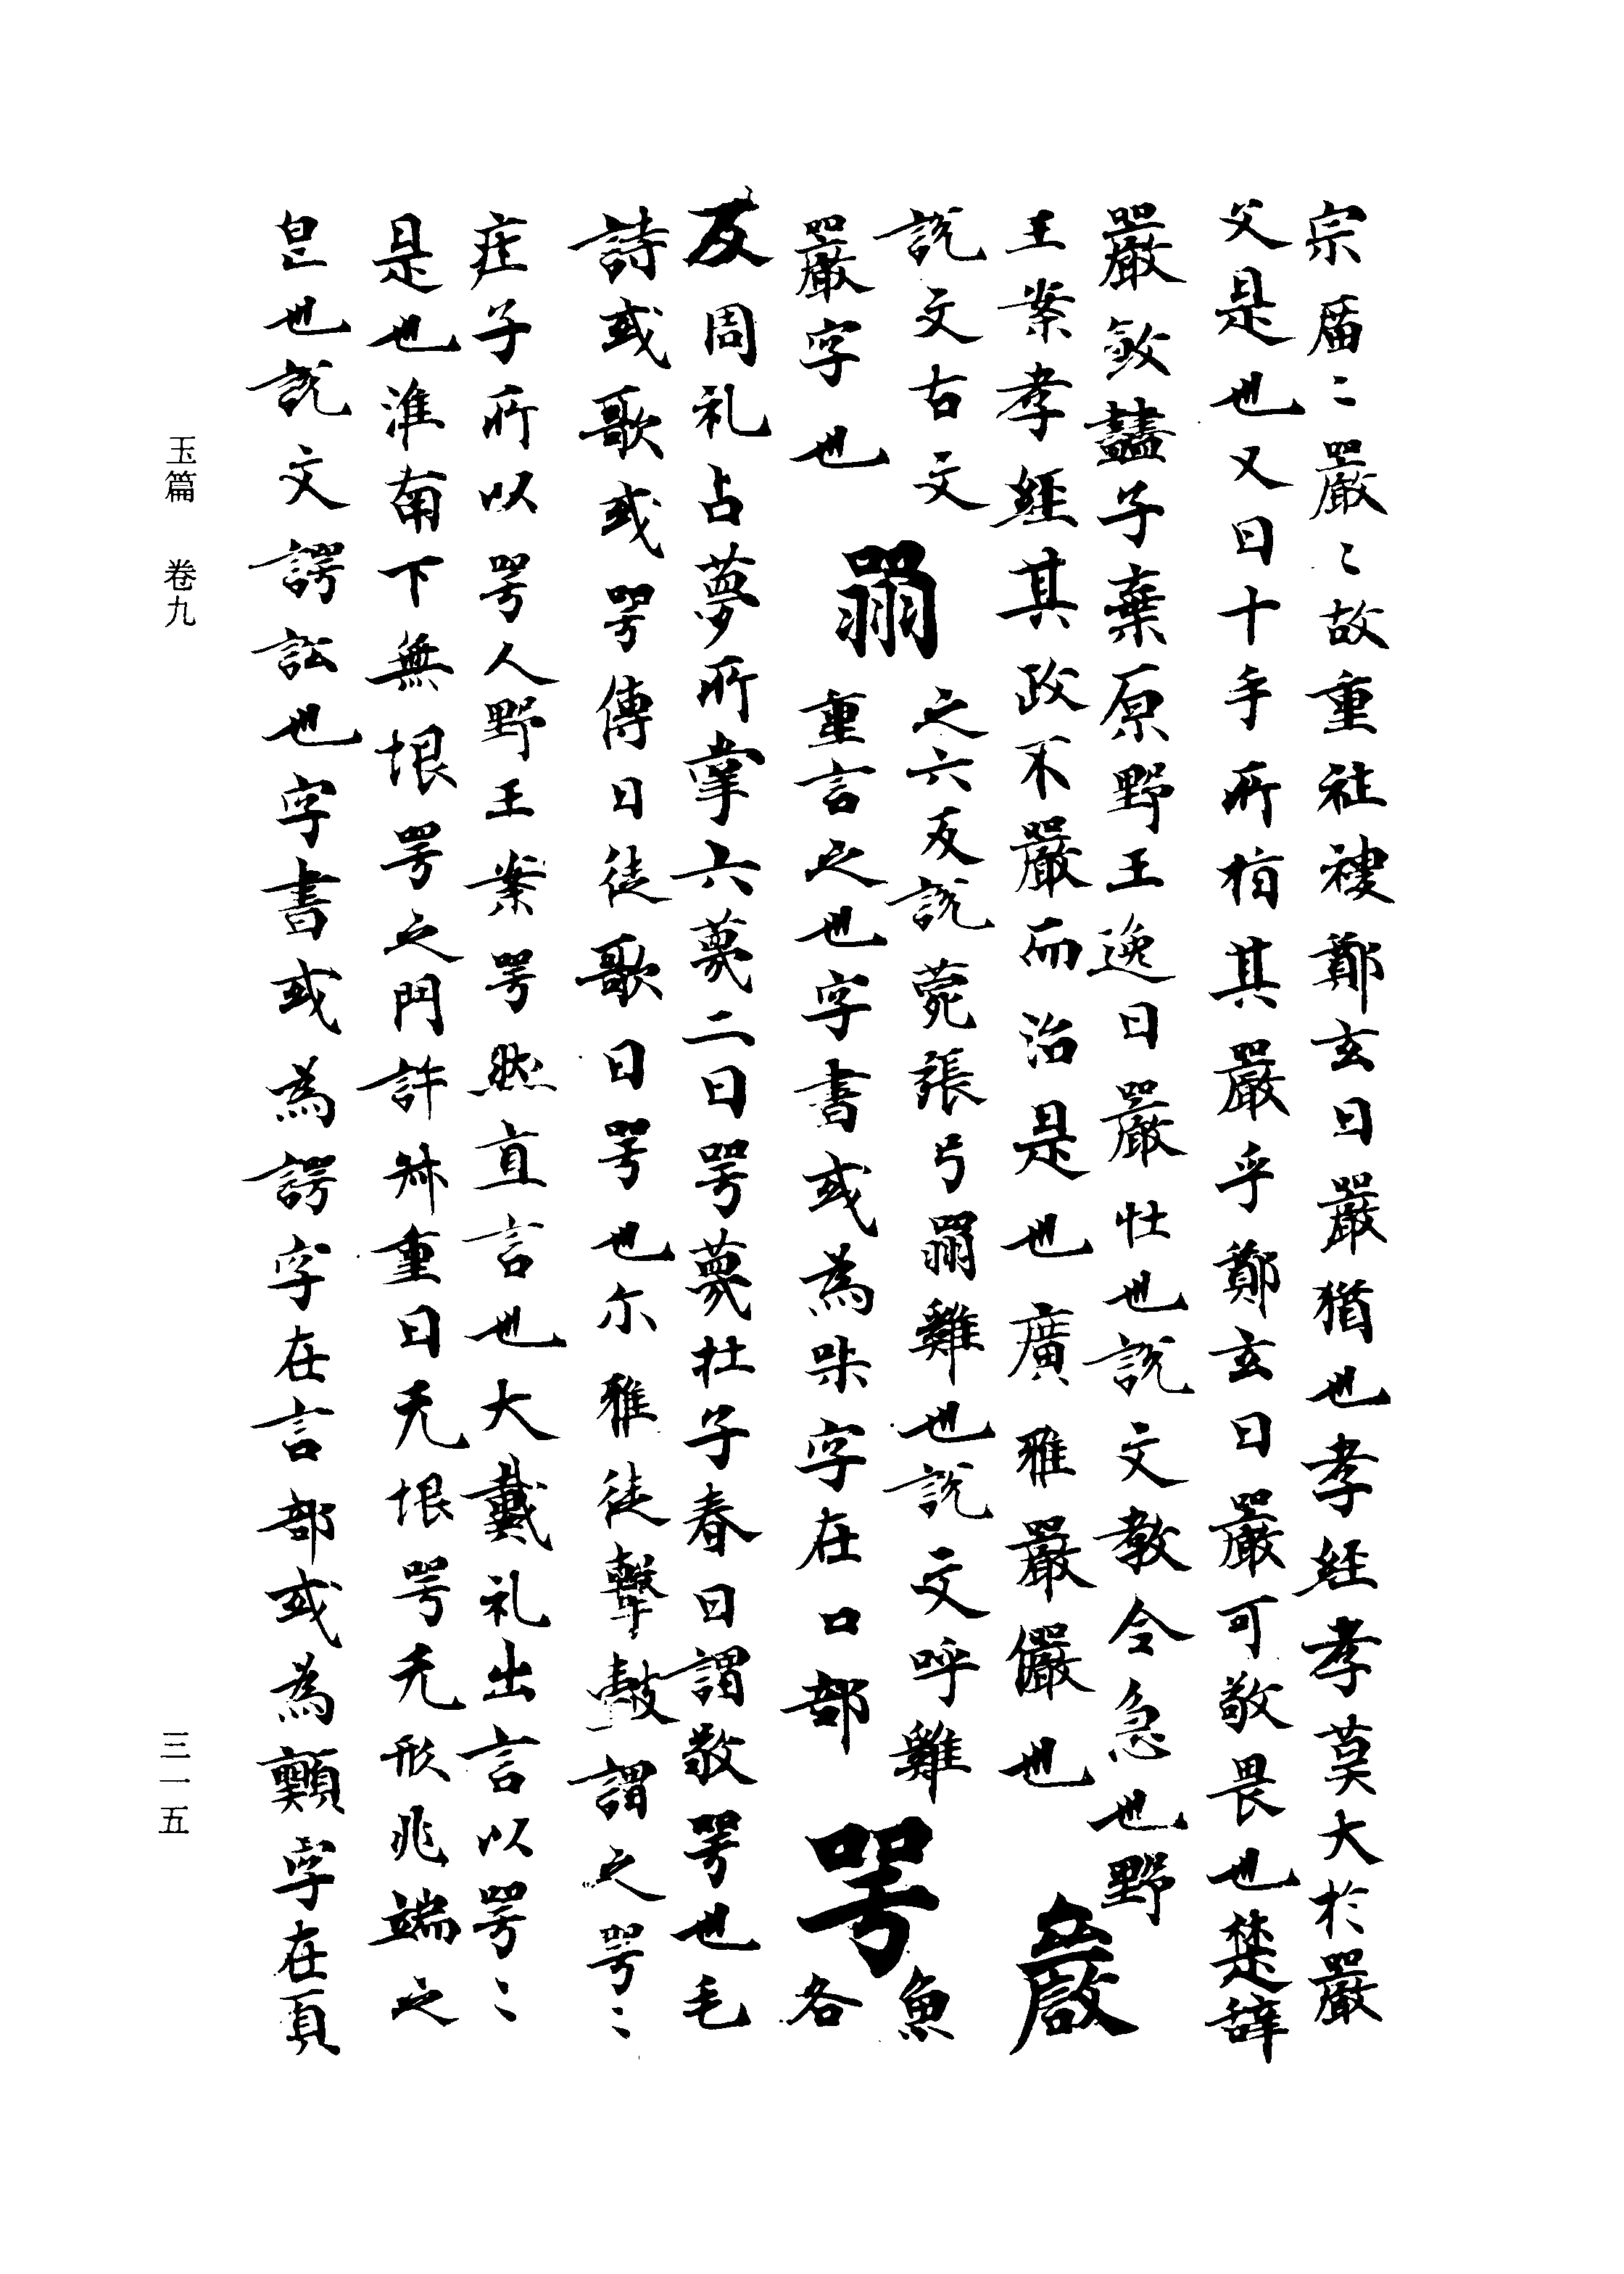 宗庿〻嚴〻故重社稷鄭玄曰嚴猶也孝經孝莫大於嚴
父是也又曰十手所指其嚴乎鄭玄曰嚴可敬畏也楚辞
嚴敓䵼子棄原野王逸曰嚴壮也說文教令急也野
王案孝經其政不嚴而治是也廣雅嚴儼也
𠪚
說文古文
嚴字也
㗊
之六反說菀張弓㗊雞也說文呼雞
重言之也字書或為喌字在口部
咢
魚
各
反周礼占夢所掌六夣二曰咢夣杜子春曰謂敬咢也毛
詩或歌或咢傳曰徒歌曰咢也尒雅徒擊鼓謂之咢〻
疰子所以咢人野王案咢然直言也大戴礼出言以咢〻
是也淮南下無垠咢之門許叔重曰无垠咢无形兆端之
皃也說文諤訟也字書或為諤字在言部或為顎字在頁
玉篇 卷九
三一五